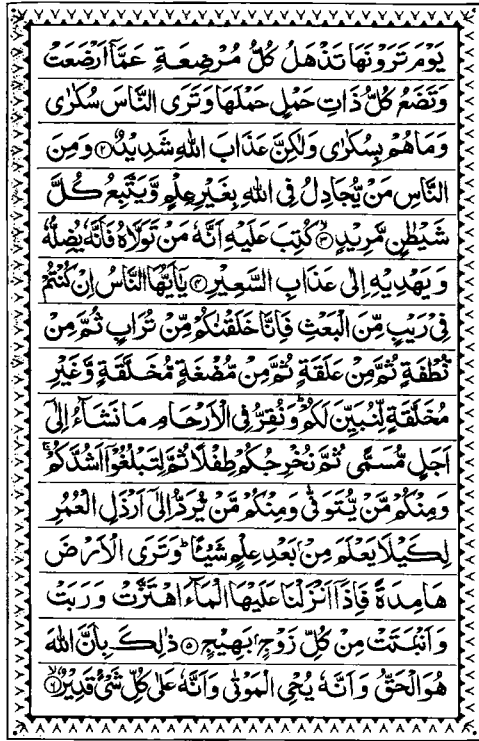 يَوْمَ تَرَوْنَهَا تَذْهَلُ كُلُّ مُرْضِعَةٍ عَمَّآ اَرْضَعَتْ
وَتَضَعُ كُلُّ ذَاتِ حَمْلٍ حَمْلَهَا وَتَرَى النَّاسَ سُكٰرٰى
وَمَا هُمْ بِسُكٰرٰى وَلٰكِنَّ عَذَابَ اللّٰهِ شَدِيْدٌ ﴿۲﴾ وَمِنَ
النَّاسِ مَنْ يُّجَادِلُ فِى اللّٰهِ بِغَيْرِ عِلْمٍ وَّيَتَّبِعُ كُلَّ
شَيْطٰنٍ مَّرِيْدٍ ﴿۳﴾ كُتِبَ عَلَيْهِ اَنَّهٗ مَنْ تَوَلَّاهُ فَاَنَّهٗ يُضِلُّهٗ
وَيَهْدِيْهِ اِلٰى عَذَابِ السَّعِيْرِ ﴿۴﴾ يٰۤاَيُّهَا النَّاسُ اِنْ كُنْتُمْ
فِىْ رَيْبٍ مِّنَ الْبَعْثِ فَاِنَّا خَلَقْنٰكُمْ مِّنْ تُرَابٍ ثُمَّ مِنْ
نُّطْفَةٍ ثُمَّ مِنْ عَلَقَةٍ ثُمَّ مِنْ مُّضْغَةٍ مُّخَلَّقَةٍ وَّغَيْرِ
مُخَلَّقَةٍ لِّنُبَيِّنَ لَكُمْ ؕ وَنُقِرُّ فِى الْاَرْحَامِ مَا نَشَآءُ اِلٰٓى
اَجَلٍ مُّسَمًّى ثُمَّ نُخْرِجُكُمْ طِفْلًا ثُمَّ لِتَبْلُغُوْۤا اَشُدَّكُمْ ۚ
وَمِنْكُمْ مَّنْ يُّتَوَفّٰى وَمِنْكُمْ مَّنْ يُّرَدُّ اِلٰٓى اَرْذَلِ الْعُمُرِ
لِكَيْلَا يَعْلَمَ مِنْۢ بَعْدِ عِلْمٍ شَيْـًٔا ؕ وَتَرَى الْاَرْضَ
هَامِدَةً فَاِذَآ اَنْزَلْنَا عَلَيْهَا الْمَآءَ اهْتَزَّتْ وَرَبَتْ
وَاَنْۢبَتَتْ مِنْ كُلِّ زَوْجٍۢ بَهِيْجٍ ﴿۵﴾ ذٰلِكَ بِاَنَّ اللّٰهَ
هُوَ الْحَقُّ وَاَنَّهٗ يُحْىِ الْمَوْتٰى وَاَنَّهٗ عَلٰى كُلِّ شَىْءٍ قَدِيْرٌ ﴿۶﴾